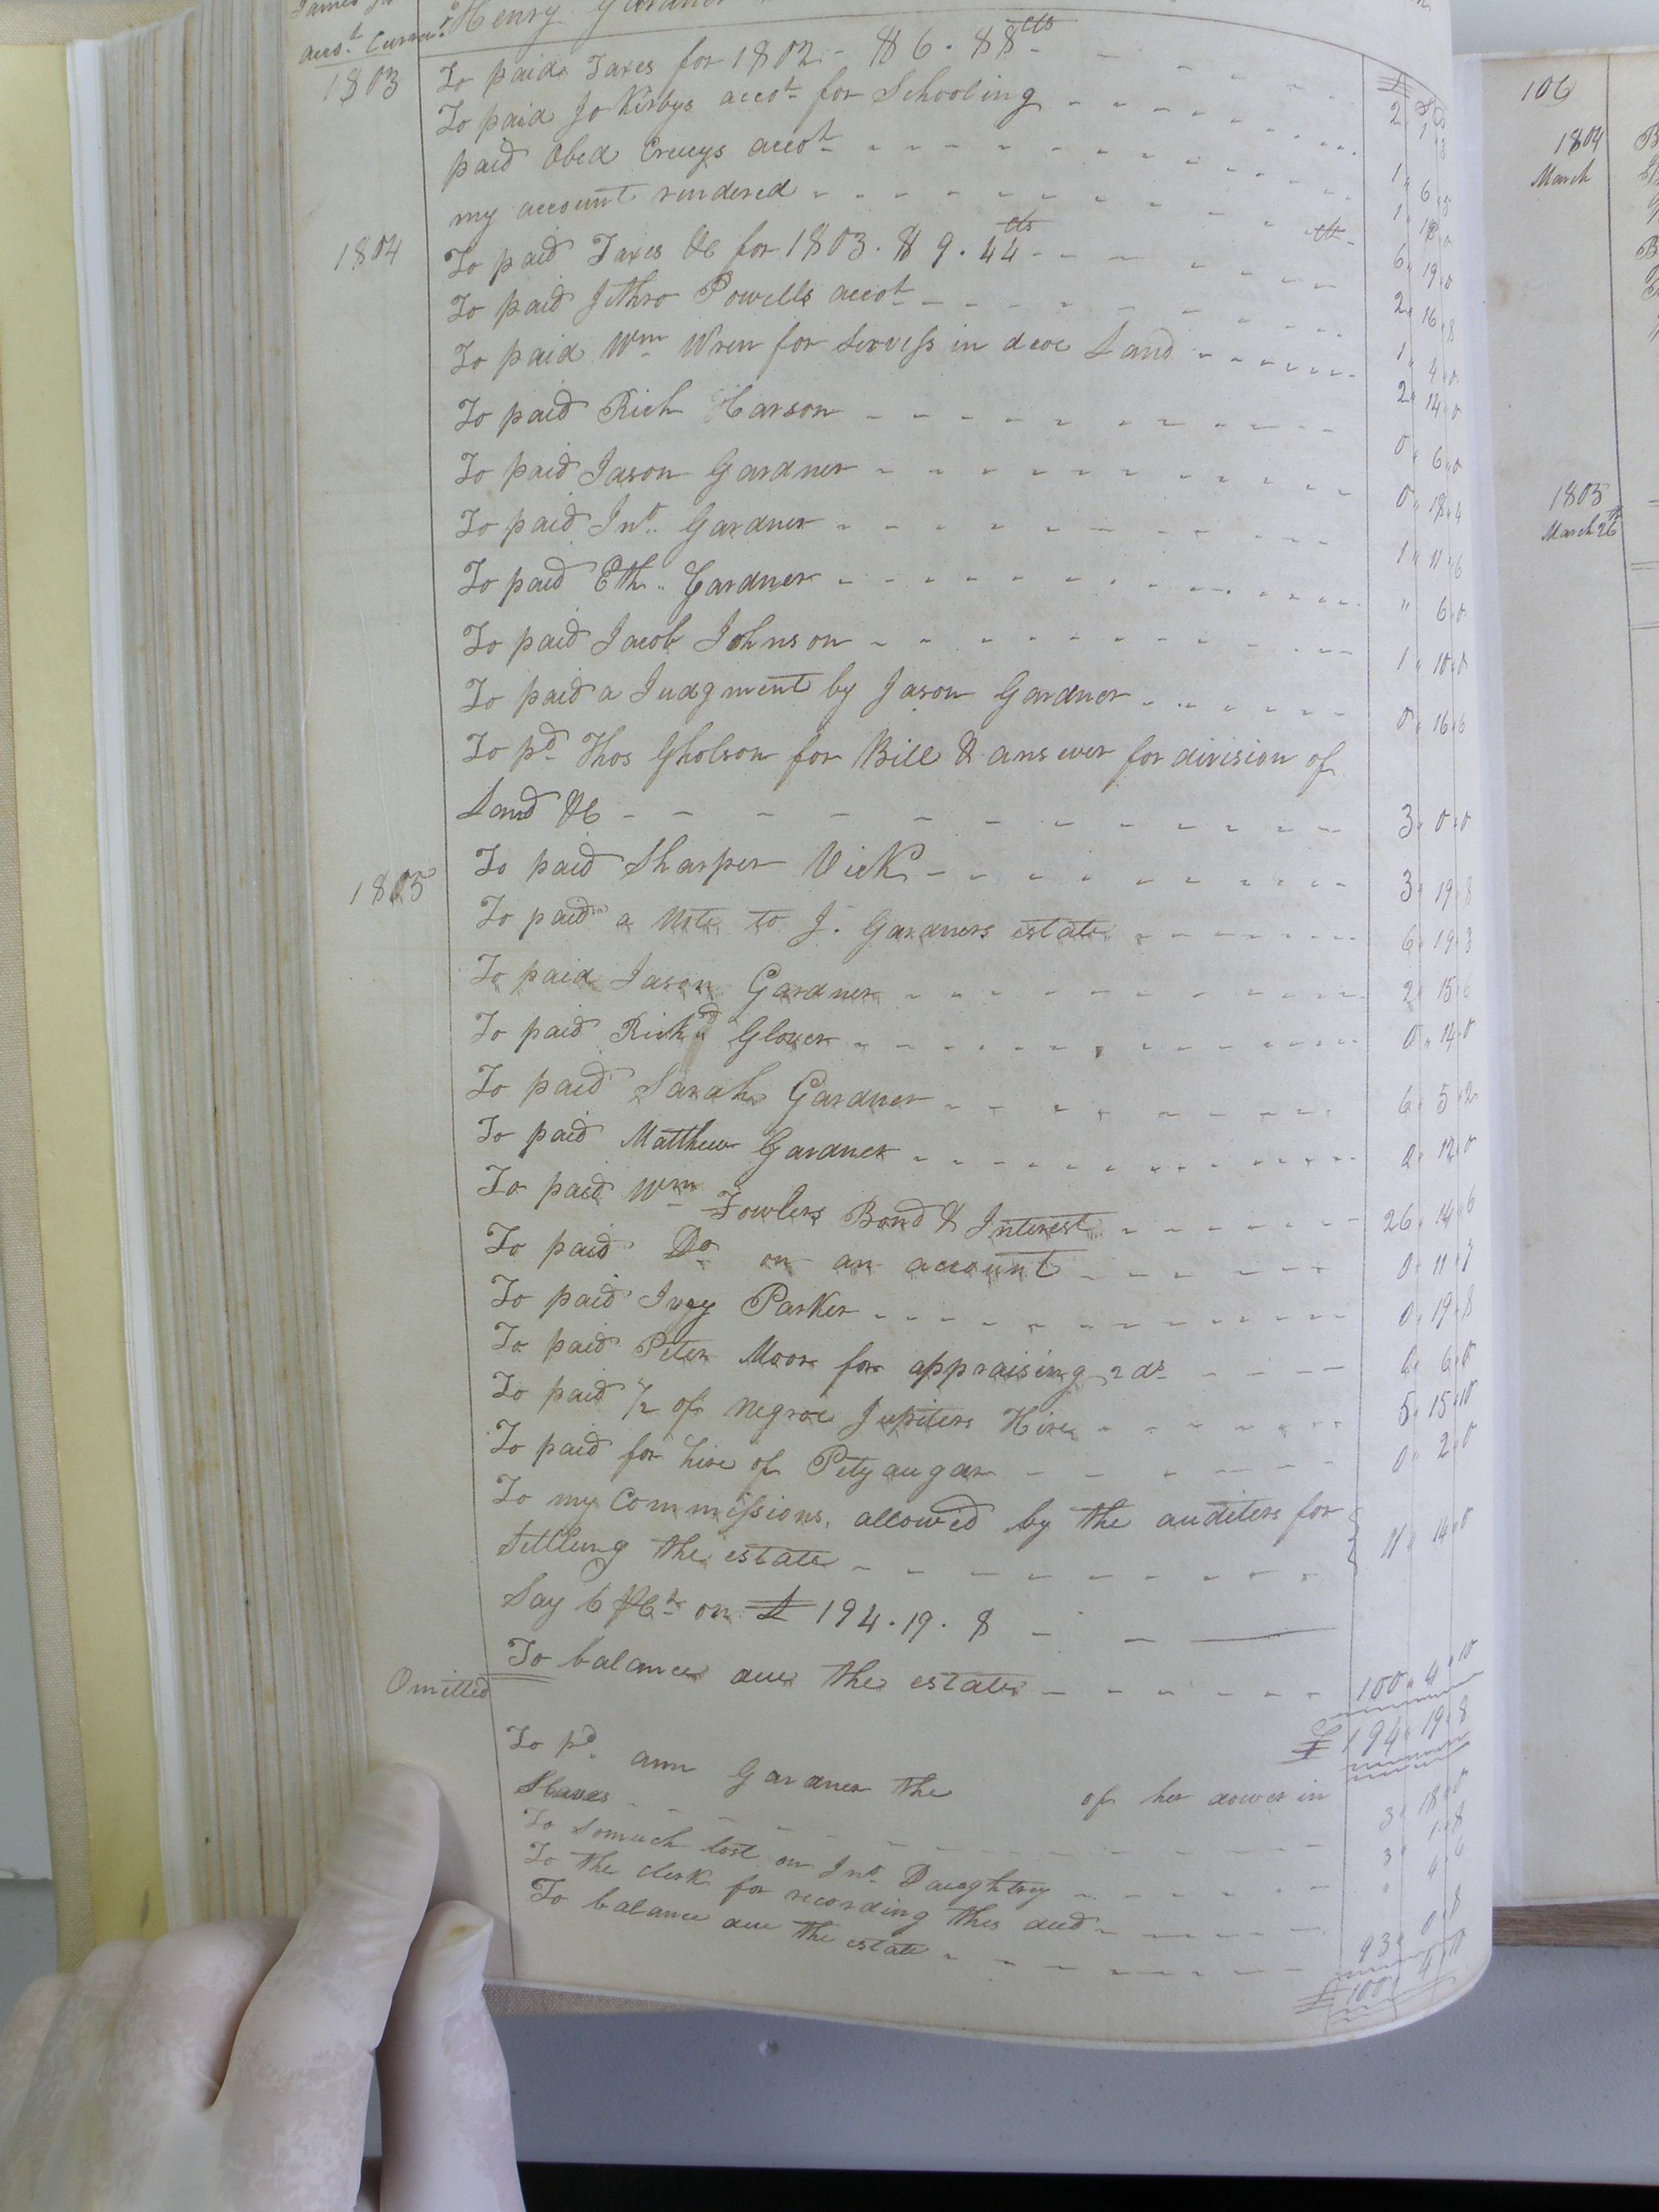 acco.t Curran.
Henry Gardner
1803 To paid Taxes for 1802 - $6.88 cts 2 1 3
To paid Jo Kirbys accot for Schooling
paid Obed Creccys accot 1 6 5
my account rendered 1 18 0
1804 To paid Taxes &c for 1803. $9.44 cts 6 19 0
To paid Jethro Powells accot 2 16 8
To paid Wm Wren for Servess in deve Land 1 4 0
To paid Rich Harson 2 14 0
To paid Jason Gardner 0 6 0
To paid Jno. Gardner 0 18 4
To paid Eth.. Gardner 1 11 6
To paid Jacob Johnson " 6 0
To paid a Judgment by Jason Gardner 1 10 0
To pd Thos Gholson for Bill & answer for division of 0 16 6
Land &c 3 0 0
1805 To paid Sharper Vick 3 19 8
To paid a Note to J. Gardners estate 6 19 3
To paid Jason Gardner 2 15 6
To paid Richd Glover 0 14 0
To paid Sarah Gardner 6 5 2
To paid Matthew Gardner 0 12 0
To paid Wm Fowlers Bond & Interest 26 14 6
To paid Do on an account 0 11 3
To paid Ivey Parker 0 19 8
To paid Peter Moor for appraising 2 ds 0 6 0
To paid 1/2 of Negroe Jupiters Hire 5 15 10
To paid for hire of Petyaugar 0 2 0
To my Commissions, allowed by the auditers for
Settleing the estate 11 14 0
Say 6 P Ct on £ 194.19.8
To balance due the estate 100 4 10
£ 194 19 8
Omitted
To pd. ann Gardner the of her dower in
Slaves 3 18 0
To somuch lost on Jno Daughtrey 3 1 8
To the clerk for recording this deed " 4 6
To balance due the estate 93 0 8
£ 100 4 10
106
1804
March
1805
March 26th